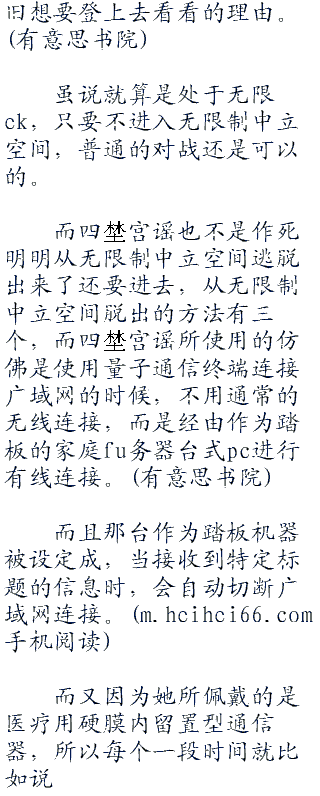 旧想要登上去看看的理由。
(有意思书院)
虽说就算是处于无限
ck，只要不进入无限制中立
空间，普通的对战还是可以
的。
而四埜宫谣也不是作死
明明从无限制中立空间逃脱
出来了还要进去，从无限制
中立空间脱出的方法有三
个，而四埜宫谣所使用的仿
佛是使用量子通信终端连接
广域网的时候，不用通常的
无线连接，而是经由作为踏
板的家庭fu务器台式pc进行
有线连接。(有意思书院)
而且那台作为踏板机器
被设定成，当接收到特定标
题的信息时，会自动切断广
域网连接。(m.hcihci66.com
手机阅读)
而又因为她所佩戴的是
医疗用硬膜内留置型通信
器，所以每个一段时间就比
如说